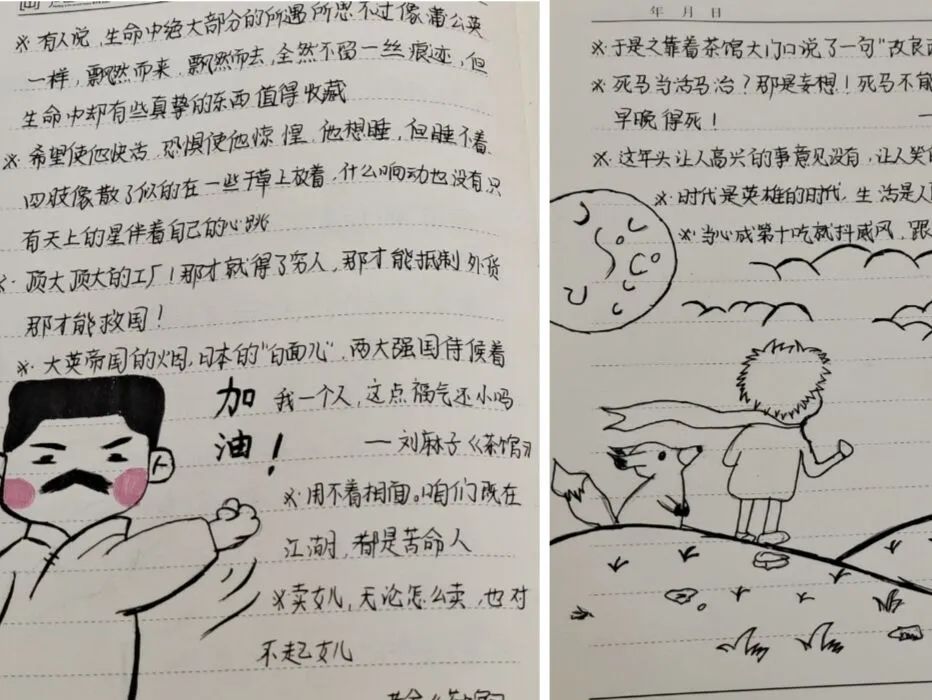 ※有人说,生命中绝大部分的所遇所思不过像蒲公英
一样,飘然而来,飘然而去,全然不留一丝痕迹,但
生命中却有些真挚的东西值得收藏
※希望使他快活,恐惧使他惊惶,他想睡,但睡不着
四肢像散了似的在一些干草上放着,什么响动也没有,只
有天上的星伴着自己的心跳
※顶大顶大的工厂!那才救得了穷人,那才能抵制外货
那才能救国!
※大英帝国的烟,日本的"白面儿",两大强国侍候着
我一个人,这点福气还小吗
—刘麻子《茶馆》
加
油!
※用不着相面。咱们既在
江湖,都是苦命人
※卖女儿,无论怎么卖,也对
不起女儿
《茶馆》
年 月 日
※于是之靠着茶馆大门口说了一句"改良
※死马当活马治?那是妄想!死马不能
早晚得死!
※这年头让人高兴的事意见没有,让人笑的
※时代是英雄的时代,生活是人
※当心成第十吃就抖威风,跟